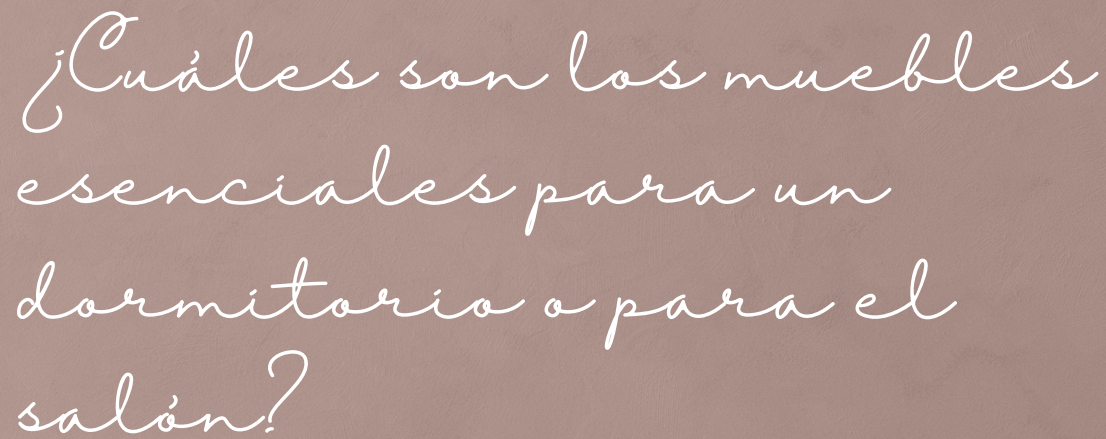 ¿Cuáles son los muebles
esenciales para un
dormitorio o para el
salón?